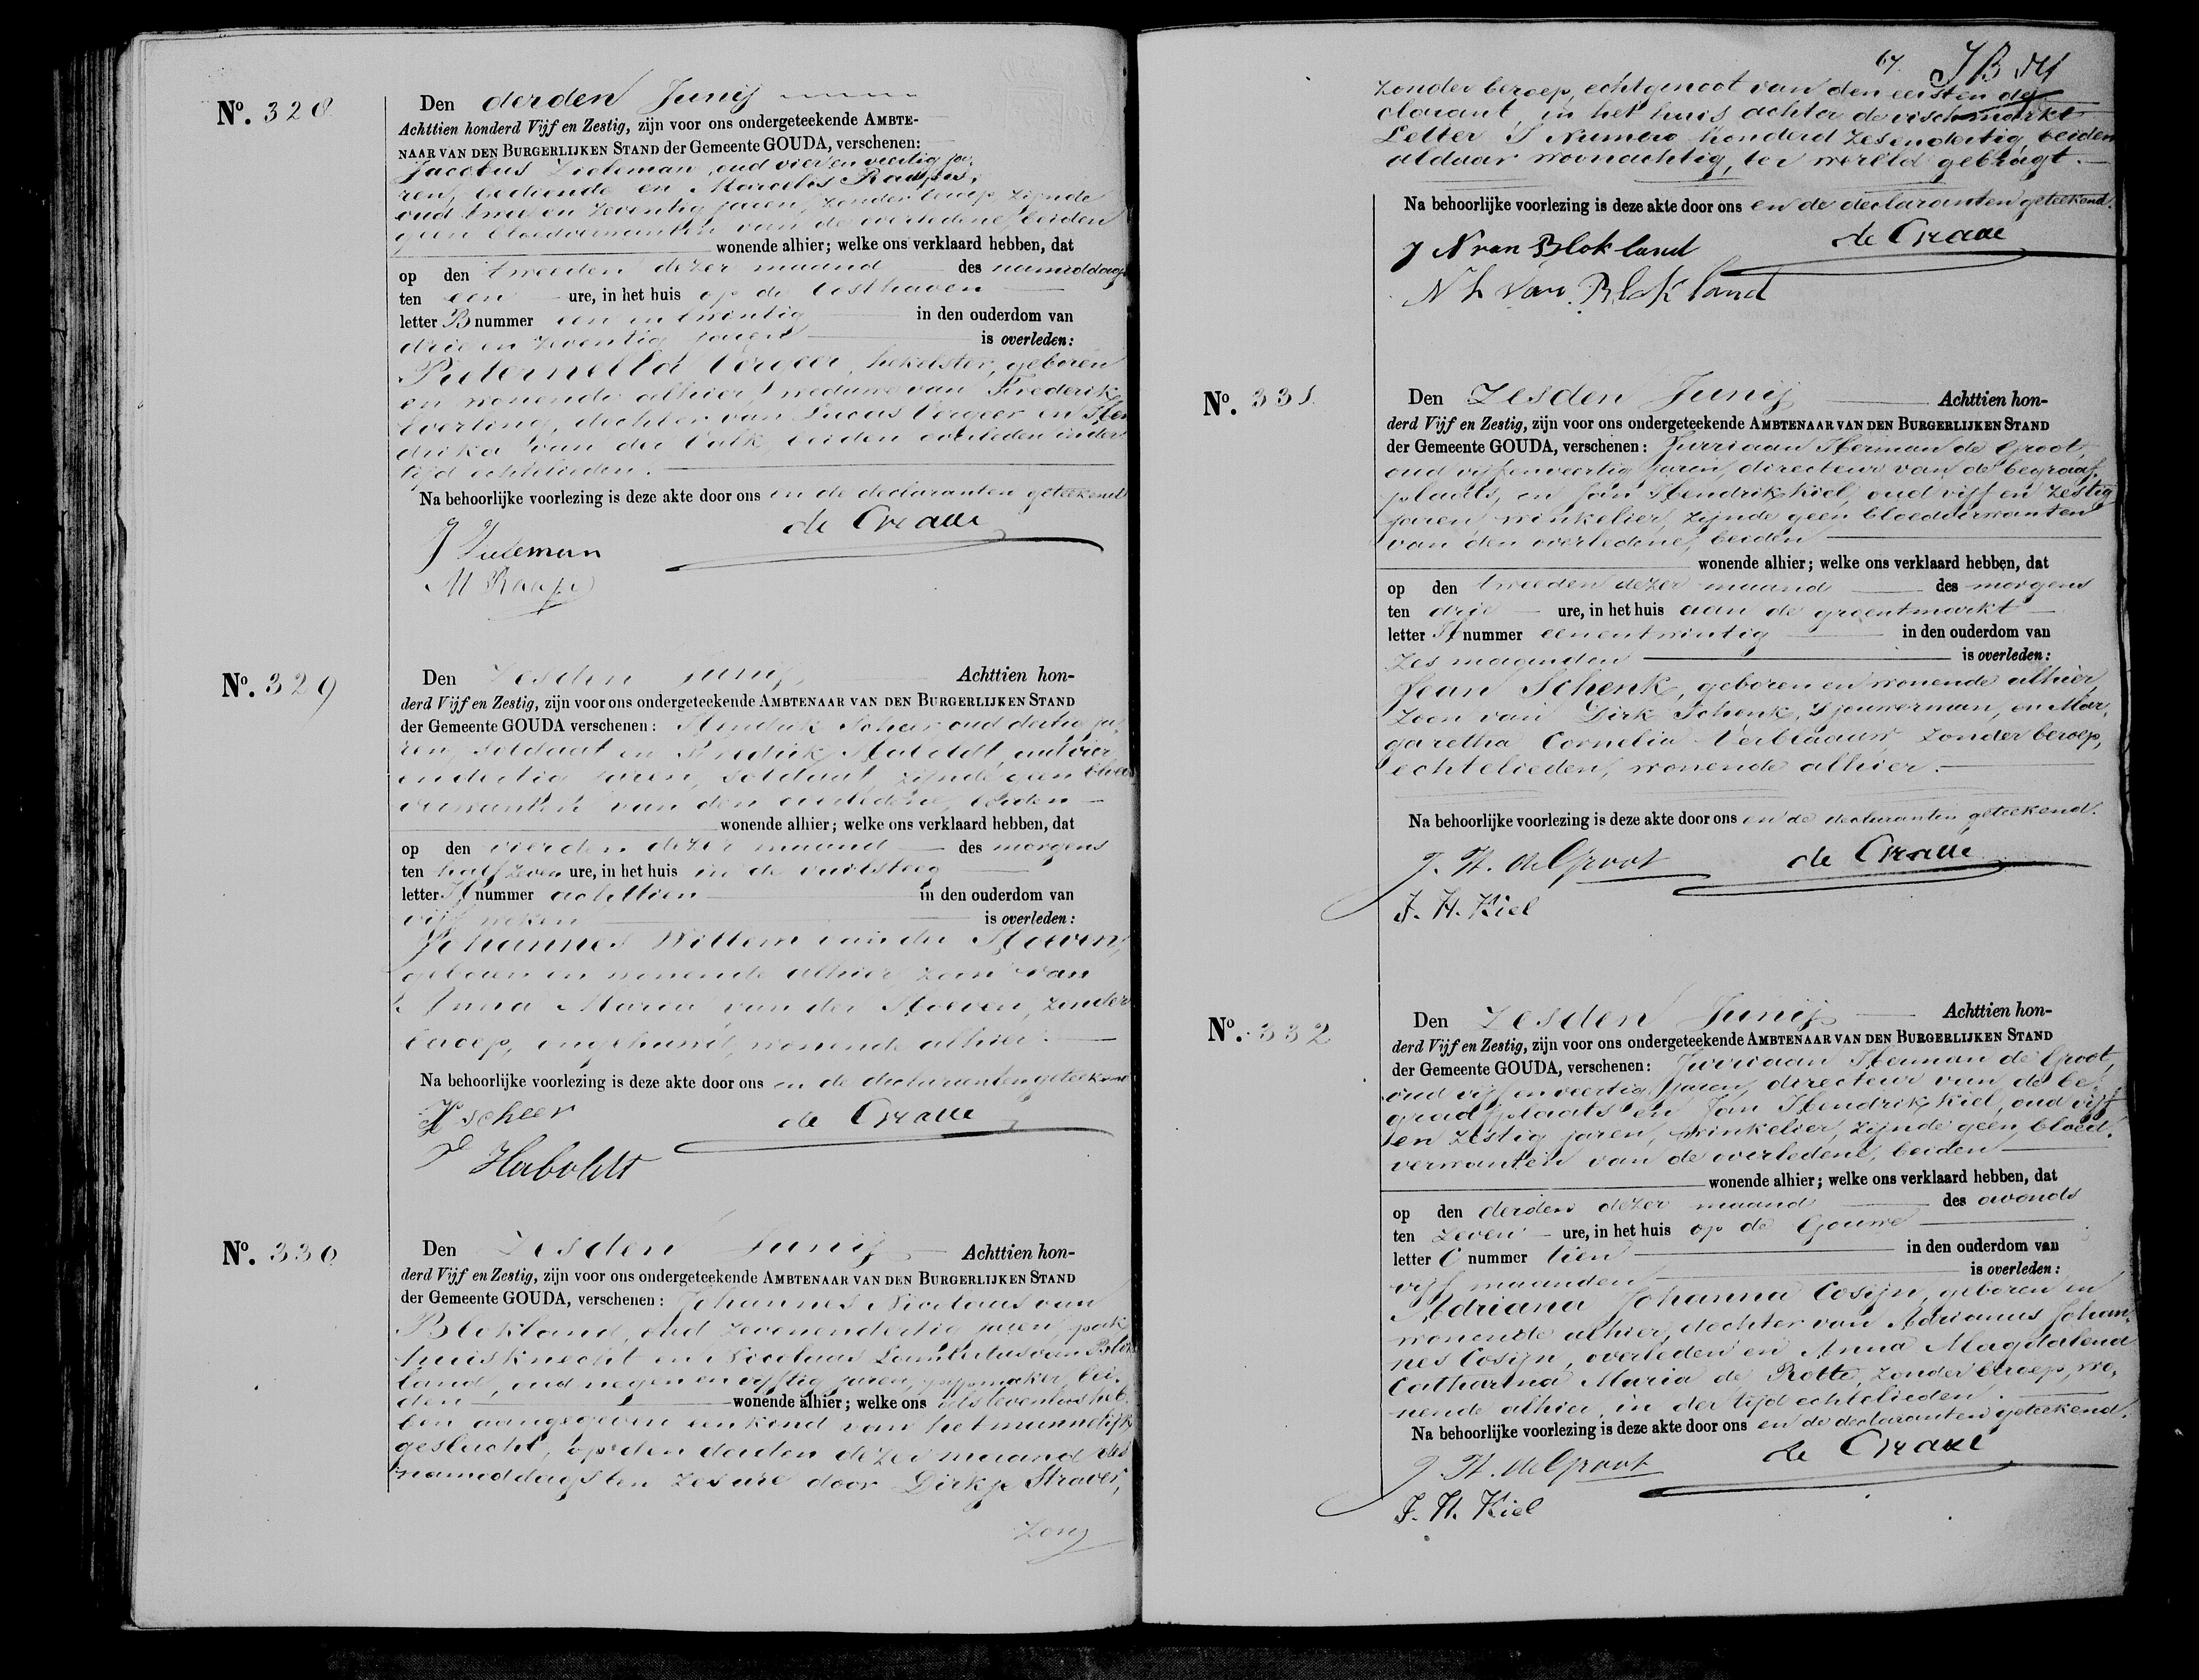 No. 328
Den derden Junij
Achttien honderd Vijf en Zestig, zijn voor ons ondergeteekende AMBTE-
NAAR VAN DEN BURGERLIJKEN STAND der Gemeente GOUDA, verschenen:
Jacobus Zieleman, oud vier en veertig ja-
ren, bediende en Marcelis Raap,
oud twee en zeventig jaren, zonder beroep, zijnde
geen bloedverwanten van de overledene, beiden
wonende alhier; welke ons verklaard hebben, dat
op den tweeden dezer maand des namiddags
ten een ure, in het huis op de Oosthaven
letter B nummer een en twintig in den ouderdom van
drie en zeventig jaren is overleden:
Pieternella Vergeer, hekelster, geboren
en wonende alhier, weduwe van Frederik
Everling, dochter van Lucas Vergeer en Hen
drika van der Valk, beiden overleden in der
tijd echtelieden.
Na behoorlijke voorlezing is deze akte door ons en de declaranten geteekend
de Graaf
M Raap
No. 329
Den Zesden Junij Achttien hon-
derd Vijf en Zestig, zijn voor ons ondergeteekende AMBTENAAR VAN DEN BURGERLIJKEN STAND
der Gemeente GOUDA verschenen: Hendrik Scheer oud dertig ja-
ren, soldaat en Fredrik Haboldt, oud vier
en dertig jaren, soldaat, zijnde geen bloed
verwanten van den overledene, beiden
wonende alhier; welke ons verklaard hebben, dat
op den vierden dezer maand des morgens
ten half zeven ure, in het huis in de vuilsteeg
letter H nummer achttien in den ouderdom van
vijf weken is overleden:
Johannes Willem van der Hoeven,
geboren en wonende alhier, zoon van
Anna Maria van der Hoeven, zonder
beroep, ongehuwd, wonende alhier.
Na behoorlijke voorlezing is deze akte door ons en de declaranten geteekend
H scheer
de Graaf
F Haboldt
No. 330
Den Zesden Junij Achttien hon-
derd Vijf en Zestig, zijn voor ons ondergeteekende AMBTENAAR VAN DEN BURGERLIJKEN STAND
der Gemeente GOUDA, verschenen: Johannes Nicolaas van
Blokland, oud zevenendertig jaren, pak
huisknecht en Nicolaas Lambertus van Blok
land, oud negen en vijftig jaren, pijpmaker, bei-
den wonende alhier; welke ons als levenloos heb-
ben aangegeven een kind van het mannelijk
geslacht, op den derden dezer maand des
namiddags ten zes ure door Dirkje Straver,
Zon
67.
zonder beroep, echtgenoot van den eersten de-
clarant, in het huis achter de vischmarkt
Letter I Numero honderd zesendertig, beiden
aldaar woonachtig, ter wereld gebragt.
Na behoorlijke voorlezing is deze akte door ons en de declaranten geteekend.
J N van Blokland
de Graaf
N L van Blokland
No. 331
Den Zesden Junij Achttien hon-
derd Vijf en Zestig, zijn voor ons ondergeteekende AMBTENAAR VAN DEN BURGERLIJKEN STAND
der Gemeente GOUDA, verschenen: Jurriaan Herman de Groot,
oud vijfenveertig jaren, directeur van de begraaf-
plaats, en Jan Hendrik Kiel, oud vijf en zestig
jaren, winkelier, zijnde geen bloedverwanten
van den overledene, beiden
wonende alhier; welke ons verklaard hebben, dat
op den tweeden dezer maand des morgens
ten drie ure, in het huis aan de groentmarkt
letter H nummer eenentwintig in den ouderdom van
zes maanden is overleden:
Jean Schenk, geboren en wonende alhier,
zoon van Dirk Schenk, sjouwerman, en Mar-
garetha Cornelia Verblaauw, zonder beroep,
echtelieden, wonende alhier.
Na behoorlijke voorlezing is deze akte door ons en de declaranten geteekend.
J. H. de Groot
de Graaf
J. H. Kiel
No. 332
Den Zesden Junij Achttien hon-
derd Vijf en Zestig, zijn voor ons ondergeteekende AMBTENAAR VAN DEN BURGERLIJKEN STAND
der Gemeente GOUDA, verschenen: Jurriaan Herman de Groot,
oud vijf en veertig jaren, directeur van de be-
graafplaats en Jan Hendrik Kiel, oud vijf
en zestig jaren, winkelier, zijnde geen bloed-
verwanten van de overledene, beiden
wonende alhier; welke ons verklaard hebben, dat
op den derden dezer maand des avonds
ten zeven ure, in het huis op de Gouwe
letter C nummer tien in den ouderdom van
vijf maanden is overleden:
Adriana Johanna Cosijn, geboren en
wonende alhier, dochter van Adrianus Johan-
nes Cosijn, overleden en Anna Magdalena
Catharina Maria de Rotte, zonder beroep, wo-
nende alhier, in der tijd echtelieden.
Na behoorlijke voorlezing is deze akte door ons en de declaranten geteekend.
J. H. de Groot
de Graaf
J. H. Kiel